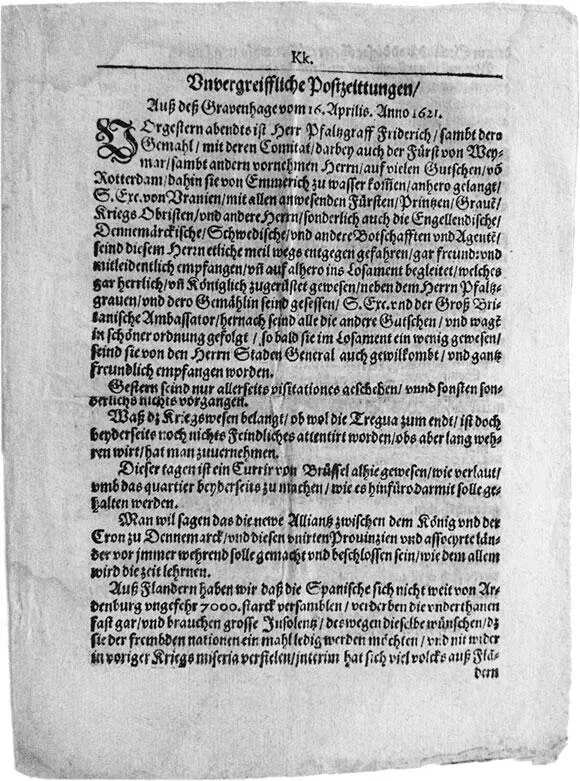 Kk.
Vnvergreiffliche Postzeittungen/
Auß deß Gravenhage vom 16. Aprilis. Anno 1621.
VOrgestern abendts ist Herr Pfaltzgraff Friderich/ sambt dero
Gemahl/ mit deren Comitat/ darbey auch der Fürst von Wey-
mar/ sambt andern vornehmen Herrn/ auf vielen Gutschen/ võ
Rotterdam/ dahin sie von Emmerich zu wasser kom̃en/ anhero gelangt/
S. Exc. von Vranien/ mit allen anwesenden Fürsten/ Printzen/ Graue͂/
Kriegs Obristen/ vnd andere Herrn/ sonderlich auch die Engellendische/
Dennemärckische/ Schwedische/ vnd andere Botschafften vnd Agente͂/
seind diesem Herrn etliche meil wegs entgegen gefahren/ gar freund: vnd
mitleidentlich empfangen/ vñ auf alhero ins Losament begleitet/ welches
gar herrlich/ vñ Königlich zugerüstet gewesen/ neben dem Herrn Pfaltz-
grauen/ vnd dero Gemählin seind gesessen/ S. Exc. vnd der Groß Bri-
tanische Ambassator/ hernach seind alle die andere Gutschen/ vnd wage͂
in schöner ordnung gefolgt/ so bald sie im Losament ein wenig gewesen/
seind sie von den Herrn Staden General auch gewilkombt/ vnd gantz
freundlich empfangen worden.
Gestern seind nur allerseits visitationes geschehen/ vnnd sonsten son-
derlichs nichts vorgangen.
Waß dz Kriegswesen belangt/ ob wol die Tregua zum endt/ ist doch
beyderseits noch nichts Feindliches attentirt worden/ obs aber lang weh-
ren wirt/ hat man zuuernehmen.
Dieser tagen ist ein Currir von Brüssel alhie gewesen/ wie verlaut/
vmb das quartier beyderseits zu machen/ wie es hinfüro darmit solle ge-
halten werden.
Man wil sagen das die newe Alliantz zwischen dem König vnd der
Cron zu Dennemarck/ vnd diesen vnirten Prouinzien vnd assocyrte län-
der vor jmmer wehrend solle gemacht vnd beschlossen sein/ wie dem allem
wird die zeit lehrnen.
Auß Flandern haben wir daß die Spanische sich nicht weit von Ar-
denburg vngefehr 7000. starck versamblen/ verderben die vnderthanen
fast gar/ vnd brauchen grosse Insolentz/ deswegen dieselbe wünschen/ dz
sie der frembden nationen ein mahl ledig werden möchten/ vnd nit wider
in voriger Kriegs miseria verfielen/ interim hat sich viel volcks auß Flä-
dern